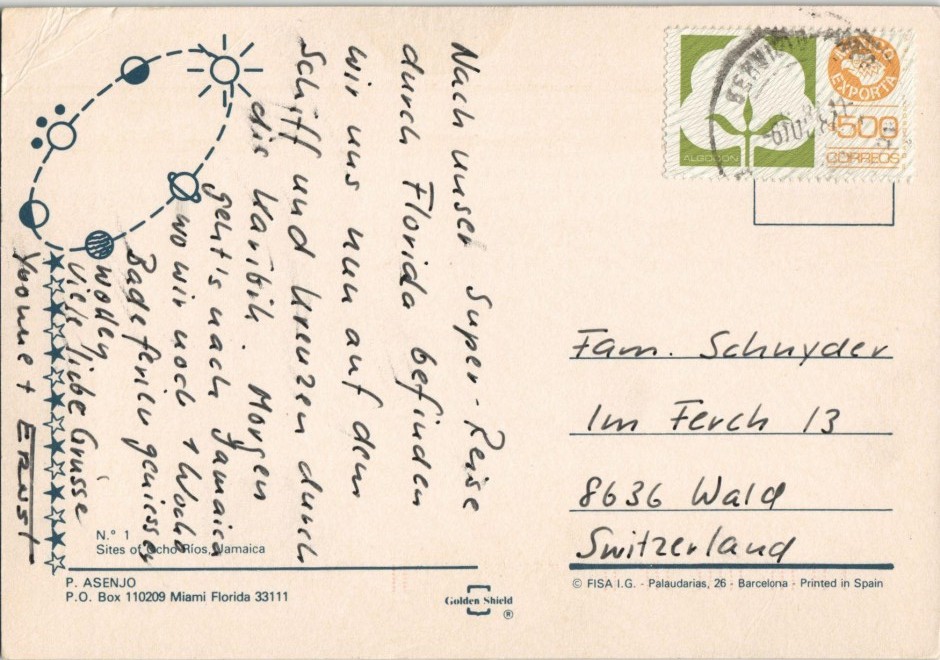 Nach unser Super-Reise
durch Florida befinden
wir uns nun auf dem
Schiff und kreuzen durch
die Karibik. Morgen
geht's nach Jamaica
wo wir noch 1 Woche
Badeferien geniessen
wollen
Viele liebe Grüsse
Yvonne + Ernst
N.° 1
Sites of Ocho Rios, Jamaica
P. ASENJO
P.O. Box 110209 Miami Florida 33111
Golden Shield
®
ALGODON
MEXICO
EXPORTA
$500
CORREOS
Fam. Schnyder
Im Ferch 13
8636 Wald
Switzerland
© FISA I.G. - Palaudarias, 26 - Barcelona - Printed in Spain